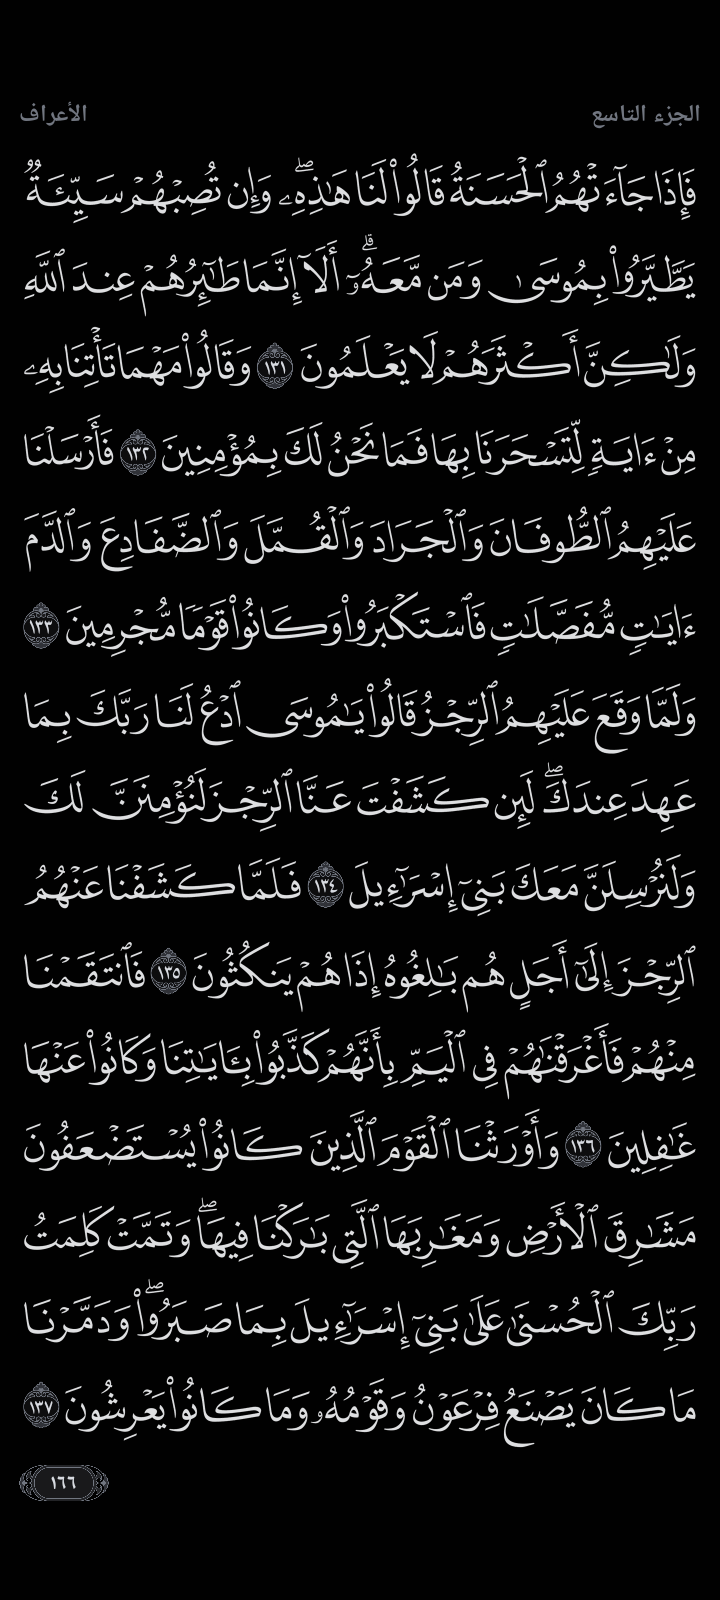 الجزء التاسع
الأعراف
فَإِذَا جَآءَتْهُمُ ٱلْحَسَنَةُ قَالُوا۟ لَنَا هَـٰذِهِۦ ۖ وَإِن تُصِبْهُمْ سَيِّئَةٌ
يَطَّيَّرُوا۟ بِمُوسَىٰ وَمَن مَّعَهُۥٓ ۗ أَلَآ إِنَّمَا طَـٰٓئِرُهُمْ عِندَ ٱللَّهِ
وَلَـٰكِنَّ أَكْثَرَهُمْ لَا يَعْلَمُونَ ١٣١ وَقَالُوا۟ مَهْمَا تَأْتِنَا بِهِۦ
مِنْ ءَايَةٍ لِّتَسْحَرَنَا بِهَا فَمَا نَحْنُ لَكَ بِمُؤْمِنِينَ ١٣٢ فَأَرْسَلْنَا
عَلَيْهِمُ ٱلطُّوفَانَ وَٱلْجَرَادَ وَٱلْقُمَّلَ وَٱلضَّفَادِعَ وَٱلدَّمَ
ءَايَـٰتٍ مُّفَصَّلَـٰتٍ فَٱسْتَكْبَرُوا۟ وَكَانُوا۟ قَوْمًا مُّجْرِمِينَ ١٣٣
وَلَمَّا وَقَعَ عَلَيْهِمُ ٱلرِّجْزُ قَالُوا۟ يَـٰمُوسَى ٱدْعُ لَنَا رَبَّكَ بِمَا
عَهِدَ عِندَكَ ۖ لَئِن كَشَفْتَ عَنَّا ٱلرِّجْزَ لَنُؤْمِنَنَّ لَكَ
وَلَنُرْسِلَنَّ مَعَكَ بَنِىٓ إِسْرَٰٓءِيلَ ١٣٤ فَلَمَّا كَشَفْنَا عَنْهُمُ
ٱلرِّجْزَ إِلَىٰٓ أَجَلٍ هُم بَـٰلِغُوهُ إِذَا هُمْ يَنكُثُونَ ١٣٥ فَٱنتَقَمْنَا
مِنْهُمْ فَأَغْرَقْنَـٰهُمْ فِى ٱلْيَمِّ بِأَنَّهُمْ كَذَّبُوا۟ بِـَٔايَـٰتِنَا وَكَانُوا۟ عَنْهَا
غَـٰفِلِينَ ١٣٦ وَأَوْرَثْنَا ٱلْقَوْمَ ٱلَّذِينَ كَانُوا۟ يُسْتَضْعَفُونَ
مَشَـٰرِقَ ٱلْأَرْضِ وَمَغَـٰرِبَهَا ٱلَّتِى بَـٰرَكْنَا فِيهَا ۖ وَتَمَّتْ كَلِمَتُ
رَبِّكَ ٱلْحُسْنَىٰ عَلَىٰ بَنِىٓ إِسْرَٰٓءِيلَ بِمَا صَبَرُوا۟ ۖ وَدَمَّرْنَا
مَا كَانَ يَصْنَعُ فِرْعَوْنُ وَقَوْمُهُۥ وَمَا كَانُوا۟ يَعْرِشُونَ ١٣٧
١٦٦